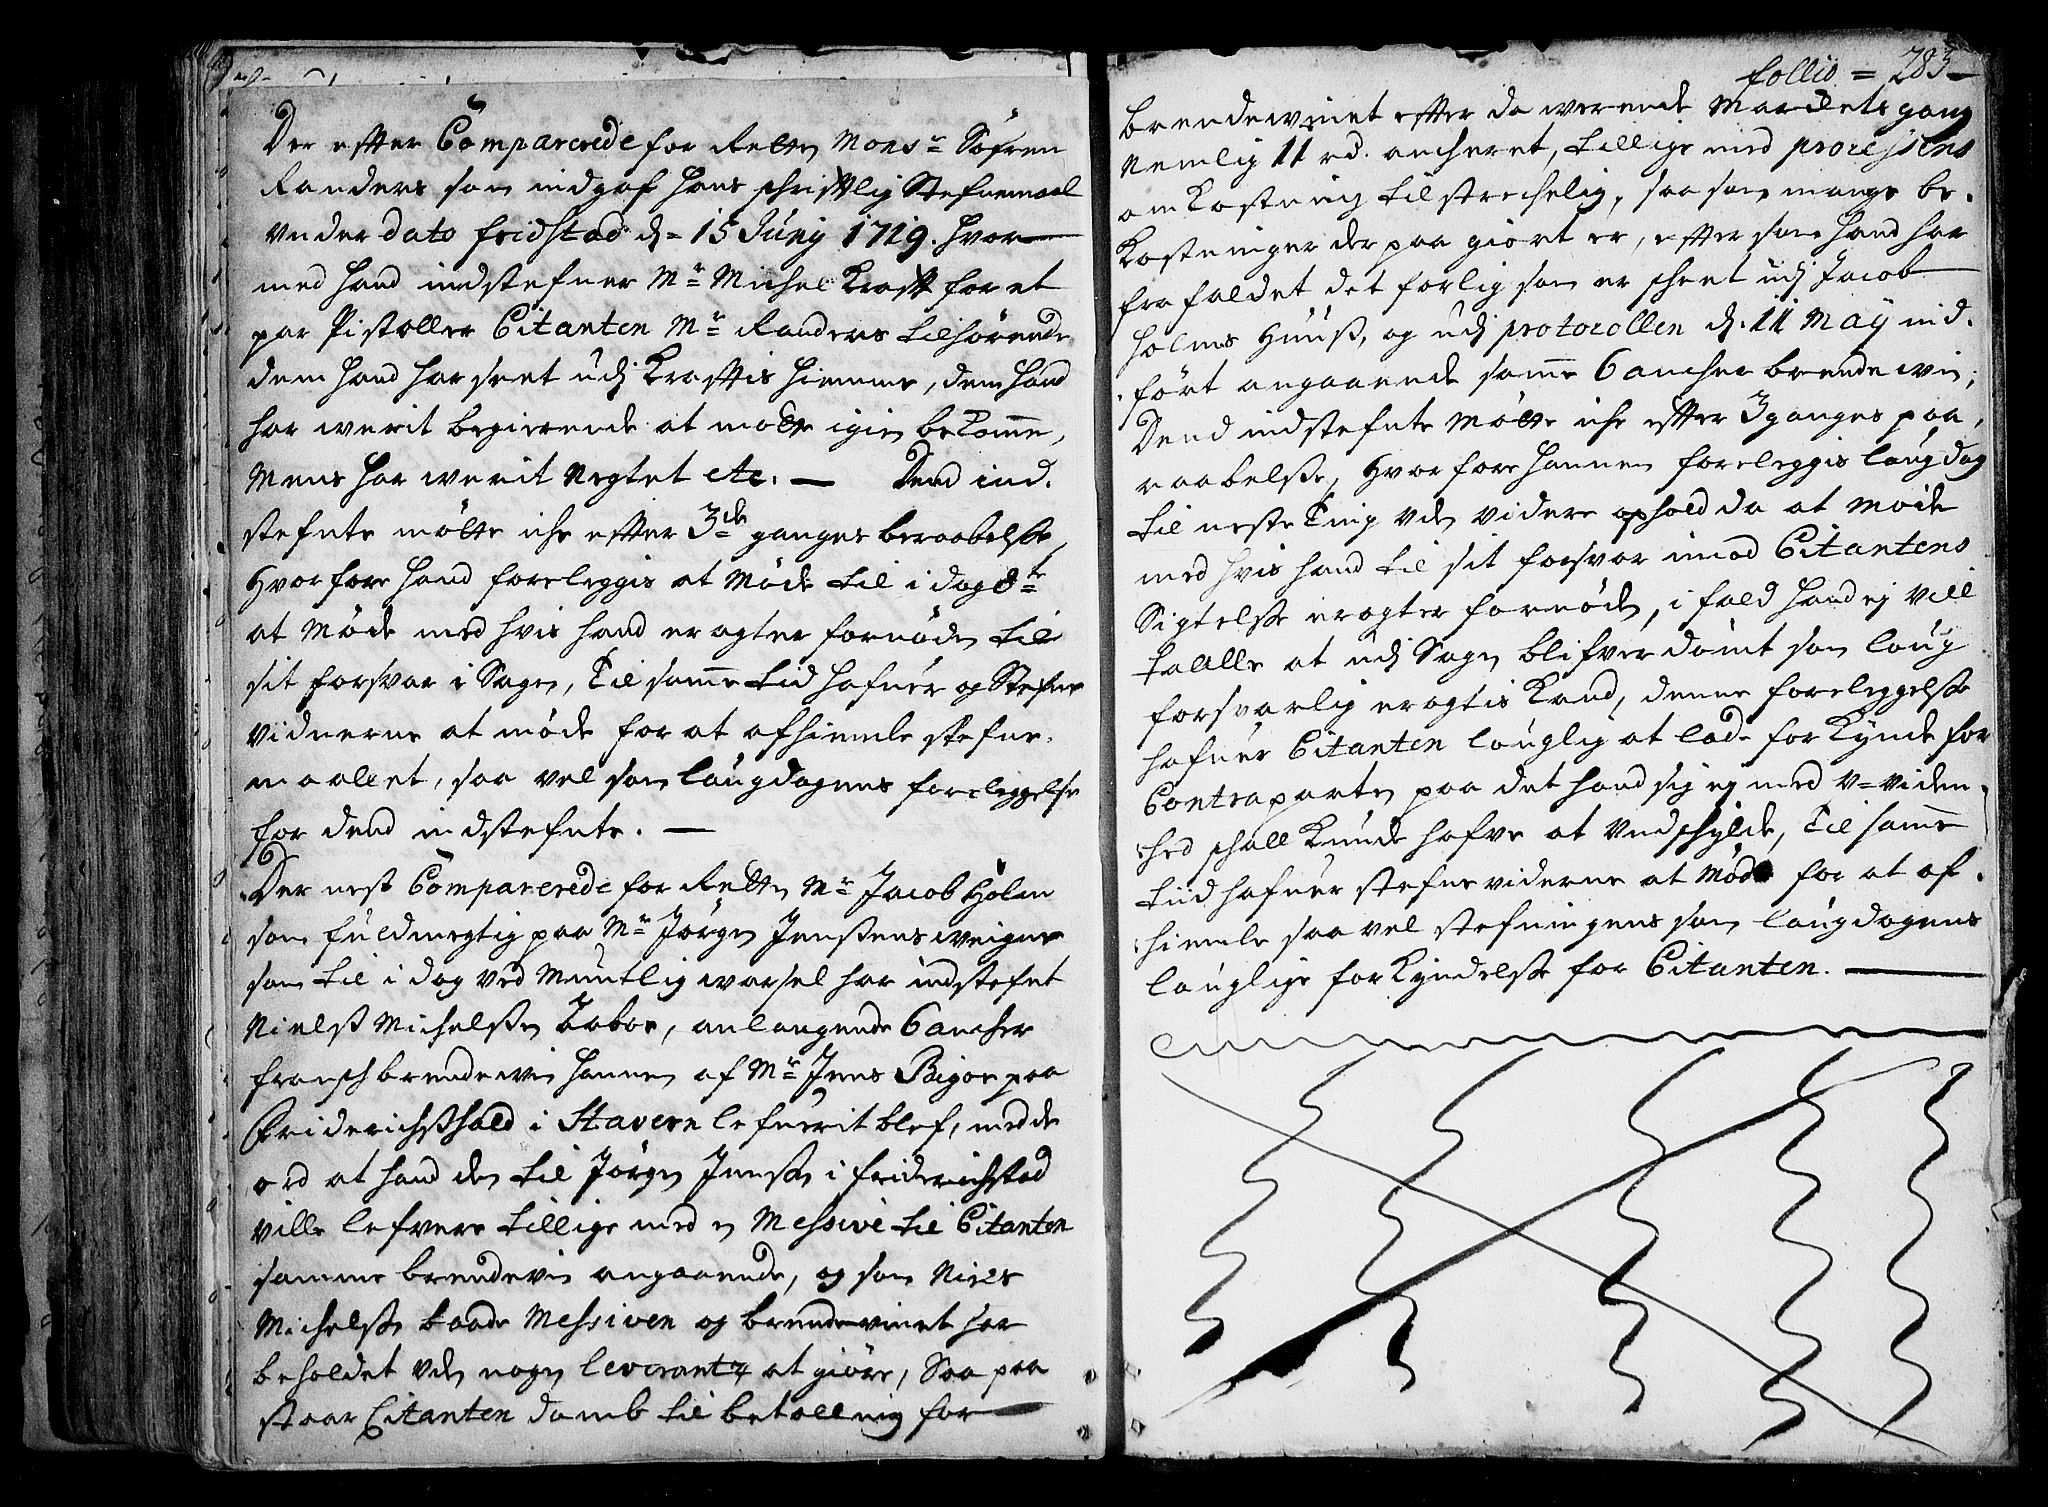 Der efter Comparerede for Retten Monsr Søfren
Randers som indgaf hans schriftlig Stefnemaal
under dato fridstad d. 15 Junij 1719. hvor
med hand indstefner Mr Michel Krafft for et
par Pistoller Citanten Mr Randers tilhørende
dem hand har seet udj Krafftis hiemme, dem hand
har werit begierende at motte igien bekomme,
Mens har werit Negtet etc. — Dend ind.
stefnte møtte iche efter 3de ganges beraabelsse,
Hvorfore hand foreleggis at Møde til i dag 8te
at Møde med hvis hand eragter fornøden til
sit forsvar i Sagen, Til samme tid hafuer og Stefne
Vidnerne at møde for at afhiemle stefne.
maalet, saa vel som laugdagens foreleggelse
for dend indstefnte. —
Der nest Comparerede for Retten Mr Jacob Holm
som fuldmegtig paa Mr Jørgen Jenssens weigne
som til i dag ved Muntlig warsel har indstefnt
Nielss Michelssen, anlangende 6 ancher
fransch brendewin hannem af Mr Jens Bigom paa
Friderichshald i Stavern lefuerit blef, med de
ord at hand den til Jørgen Jenssen i friderichstad
ville lefvere tillige med en Messive til Citanten
samme brendevin angaaende, og som Niels
Michelssen baade Messiven og brendevinet har
beholdet uden nogen leverantz at giøre, Saa paa
staar Citanten domb til betalling for
follio = 283
brendewinet efter da werende Marckets gang
Nemlig 11 rd. ancheret, tillige med processens
omkostning tilstrechelig, saa som mange be.
kostninger der paa giort er, efter som hand har
fra faldet det forlig som er scheet udj Jacob
Holms Huuss, og udj protocollen d. 11 May ind.
ført angaaende samme 6 ancher brendewin,
Dend indstefnte Møtte iche efter 3 ganges paa,
raabelsse, Hvorfore hannem foreleggis laugdag
til neste Ting uden videre ophold da at Møde
med hvis hand til sit forsvar imod Citantens
Sigtelsse eragter fornøden, i fald hand ej vill
taalle at udj Sagen blifver dømt som laug
forsvarlig eragtis kand, denne foreleggelsse
hafuer Citanten lauglig at lade forkynde for
Contraparten paa det hand sig ej med u-viden.
hed schall kunde hafve at undschylde, Til samme
tiid hafuer stefneviderne at Møde for at af.
hiemle saa vel stefningens som laugdagens
lauglige forkyndelsse for Citanten. —